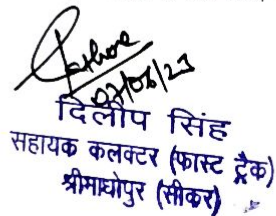 07/06/23
दिलीप सिंह
सहायक कलक्टर (फास्ट ट्रैक)
श्रीमाधोपुर (सीकर)